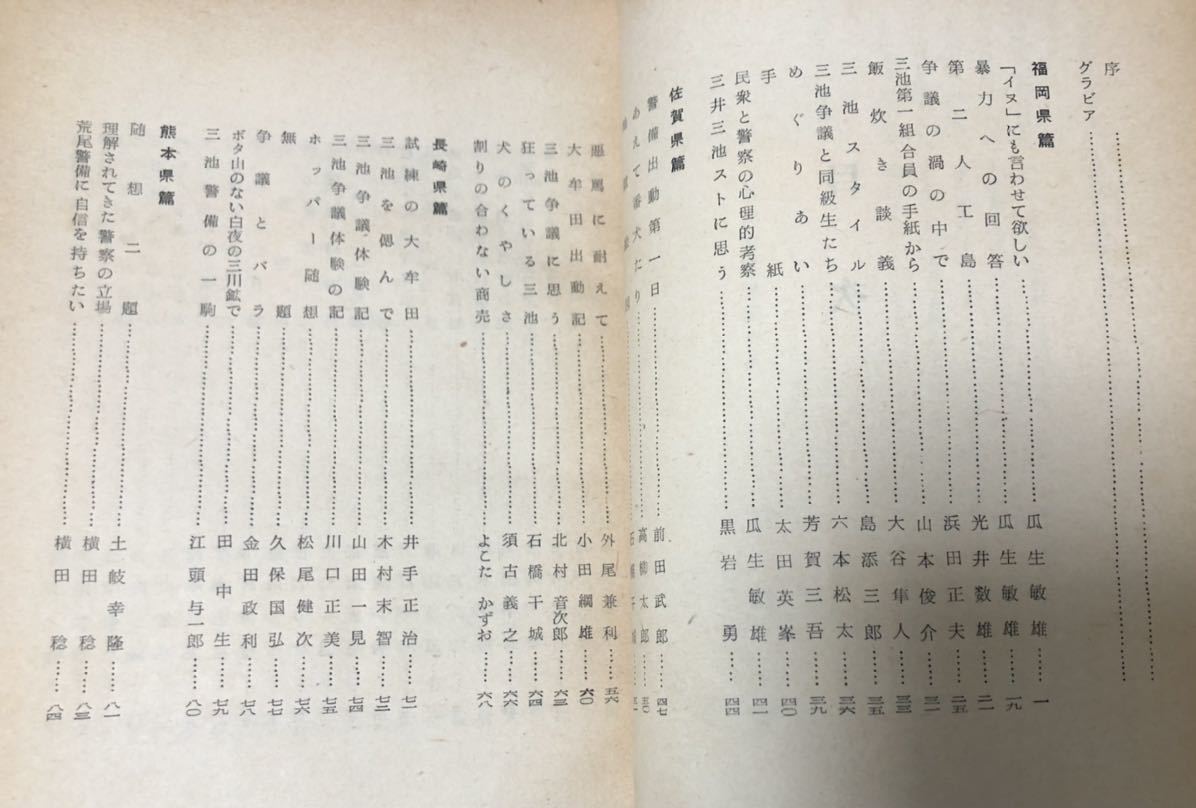 序
グラビア
福岡県篇
「イヌ」にも言わせて欲しい……瓜生敏雄……一
暴力への回答……瓜生敏雄……一九
第二人工島……光井数雄……二一
争議の渦の中で……浜田正夫……二五
三池第一組合員の手紙から……山本俊介……三一
飯炊き談義……大谷隼人……三三
三池スタイル……島添三郎……三五
三池争議と同級生たち……六本松太……三六
めぐりあい……芳賀三吾……三九
手紙……太田英峯……四〇
民衆と警察の心理的考察……瓜生敏雄……四一
三井三池ストに思う……黒岩勇……四四
佐賀県篇
警備出動第一日……前田武郎……四七
あえて番犬たり……高柳太郎……五〇
悪罵に耐えて……外尾兼利……五六
大牟田出動記……小田綱雄……六〇
三池争議に思う……北村音次郎……六三
狂っている三池……石橋干城……六四
犬のくやしさ……須古義之……六六
割りの合わない商売……よこたかずお……六八
長崎県篇
試練の大牟田……井手正治……七一
三池を偲んで……木村末智……七二
三池争議体験記……山田一見……七四
三池争議体験の記……川口正美……七五
ホッパー随想……松尾健次……七六
無題……久保国弘……七七
争議とバラ……金田政利……七八
ボタ山のない白夜の三川鉱で……田中生……七九
三池警備の一駒……江頭与一郎……八〇
熊本県篇
随想二題……土岐幸隆……八一
理解されてきた警察の立場……横田稔……八三
荒尾警備に自信を持ちたい……横田稔……八四